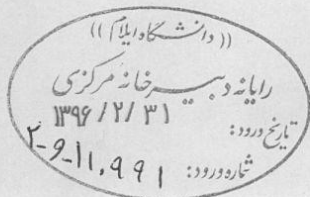 (( دانشگاه ایلام ))
رایانه دبیرخانه مرکزی
تاریخ ورود: ۱۳۹۶/۲/۳۱
شماره ورود: ۲-۹-۱۱,۹۹۱